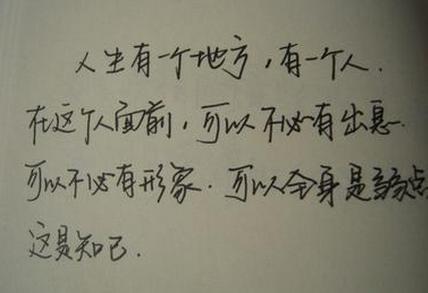 人生有一个地方，有一个人.
在这个人面前，可以不必有出息.
可以不必有形象.可以全身是缺点
这是知己.